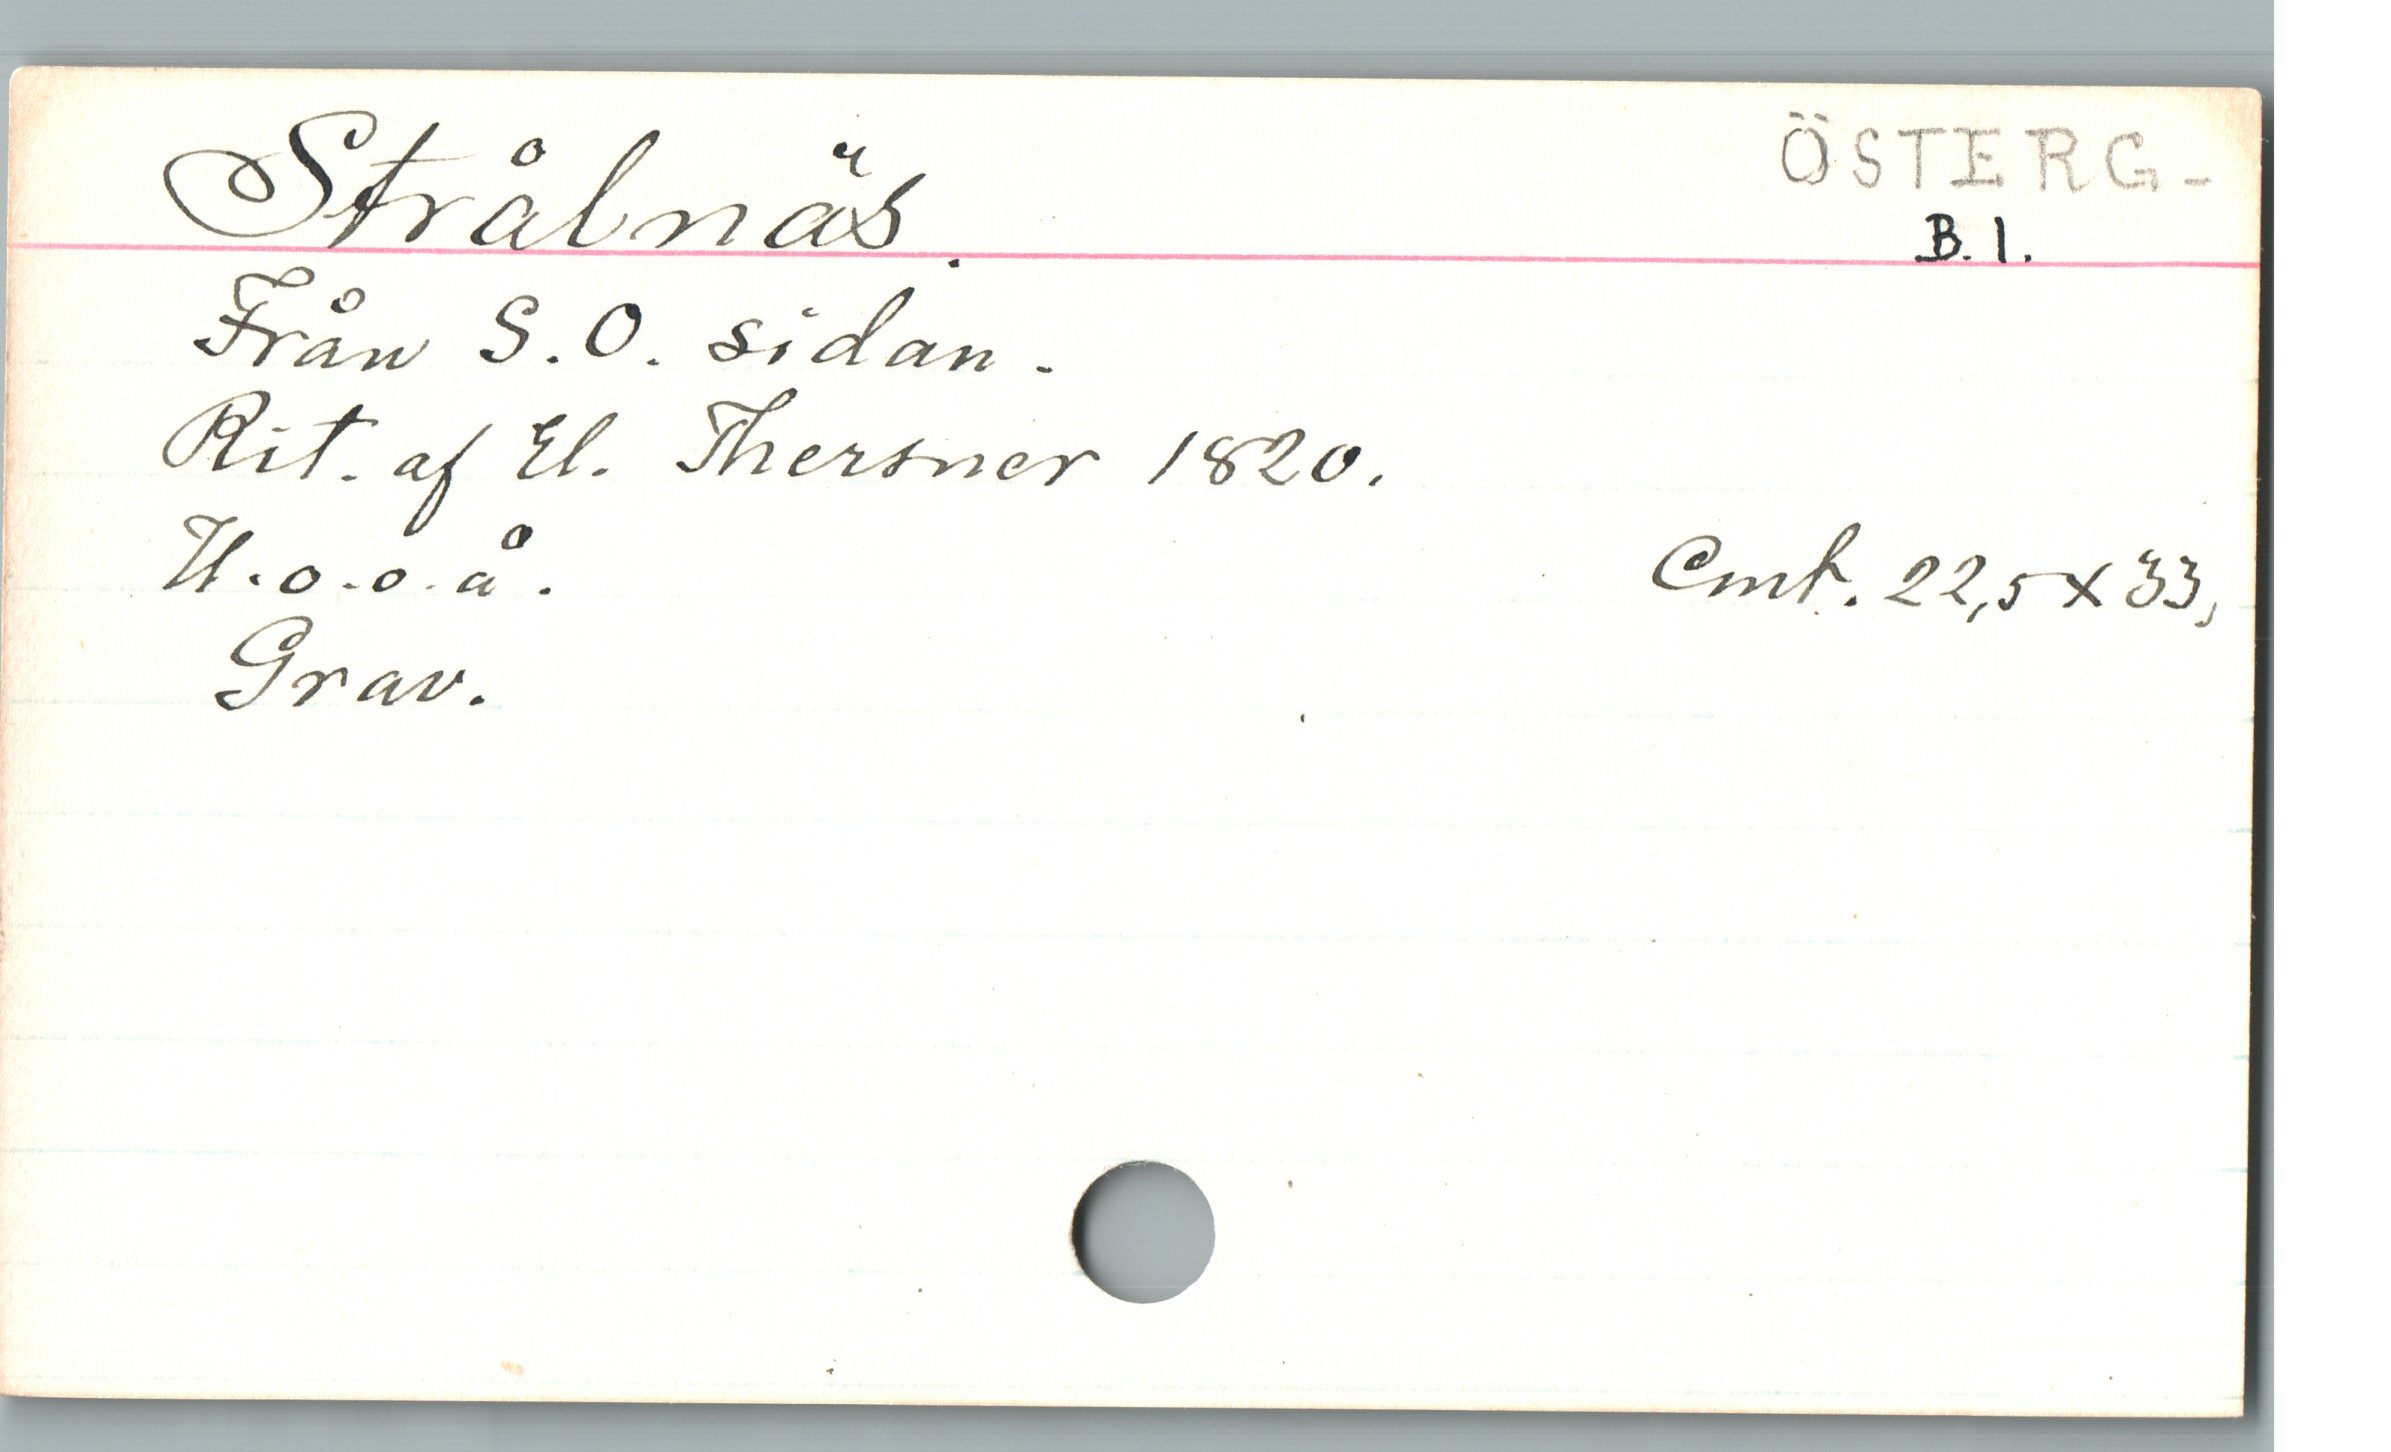 Strålnäs.
ÖSTERG-
B. 1.
Från S. O. sidan.
Rit. af El. Thersner 1820.
U. o. o. å.
Cmt. 22,5 X 33,
Grav.